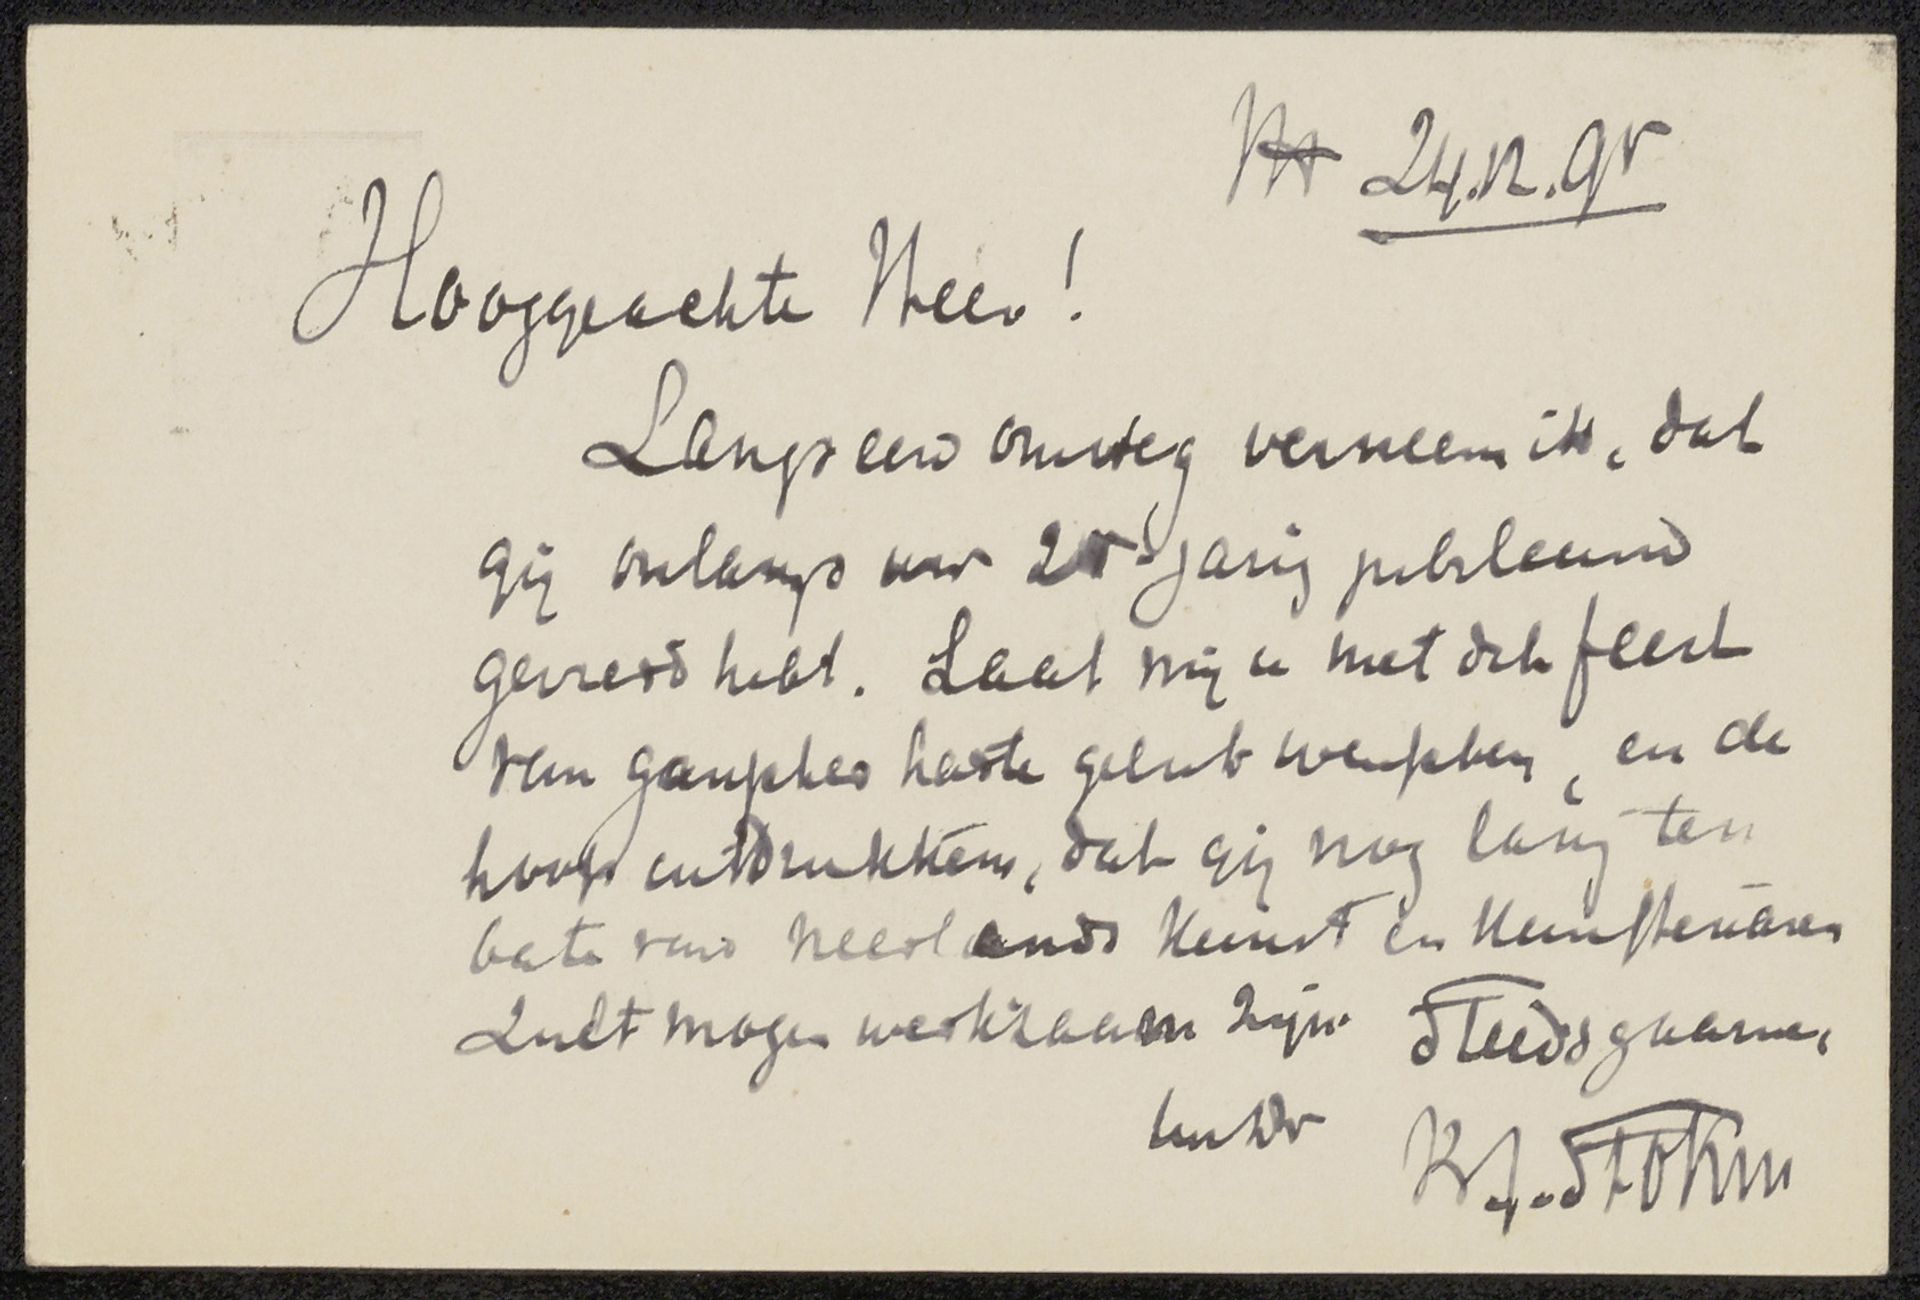 24.12.95
Hooggeachte Heer!
Langs een omweg verneem ik, dat
gij onlangs uw 25-jarig jubileum
gevierd hebt. Laat mij u met dit feest
van ganscher harte geluk wenschen, en de
hoop uitdrukken, dat gij nog lang ten
bate van Neerlands Kunst en Kunstenaren
zult mogen werkzaam zijn. Steeds gaarne,